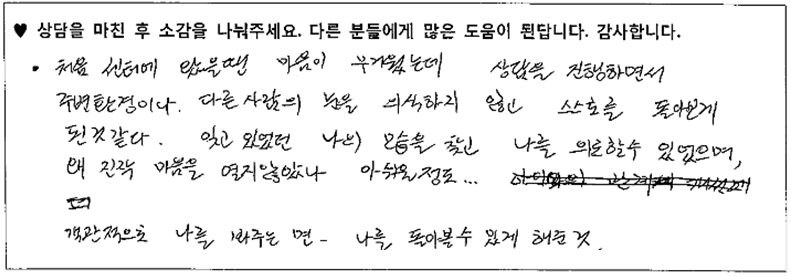 ♥ 상담을 마친 후 소감을 나눠주세요. 다른 분들에게 많은 도움이 된답니다. 감사합니다.
• 처음 센터에 왔을땐 마음이 무거웠는데 상담을 진행하면서
주변환경이나. 다른사람의 눈을 의식하지 않고 스스로를 돌아보게
된것같다. 잊고 있었던 나의 모습을 찾고 나를 위로할수 있었으며,
왜 진작 마음을 열지않았나 아쉬울정도...
객관적으로 나를 봐주는 면 - 나를 돌아볼수 있게 해준 것.